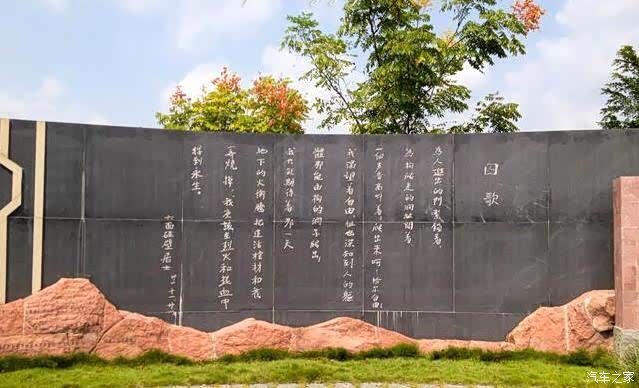 囚歌
为人进出的门紧锁着，
为狗爬走的洞敞开着，
一个声音高叫着，爬出来呵！给尔自由
我渴望着自由，但也深知到人的躯
体那能由狗的洞子爬出
我只能期待着，那一天
地下的火冲腾，把这活棺材和我
一齐烧掉，我应该在烈火和热血中
得到永生。
六面碰壁居士
汽车之家